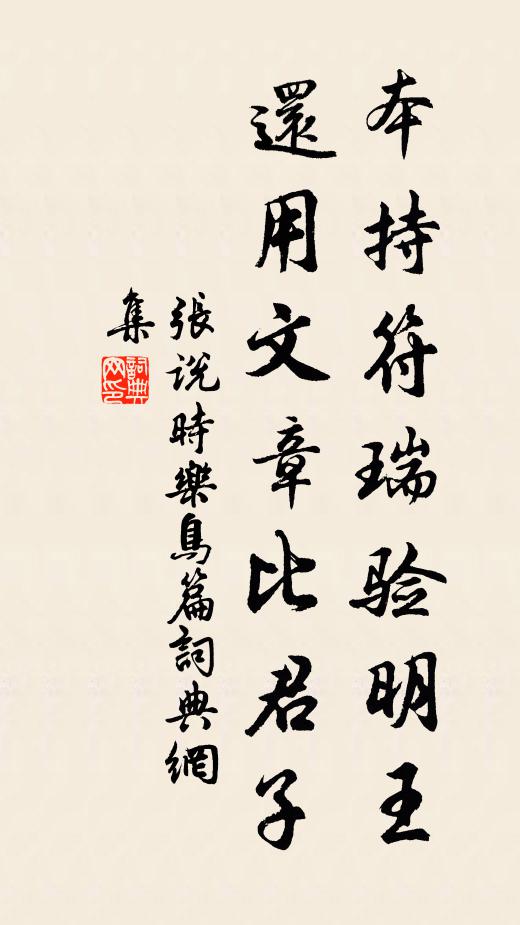 本持符瑞验明王
還用文章比君子
張说時樂鳥篇詞典網
集
詞典
网印